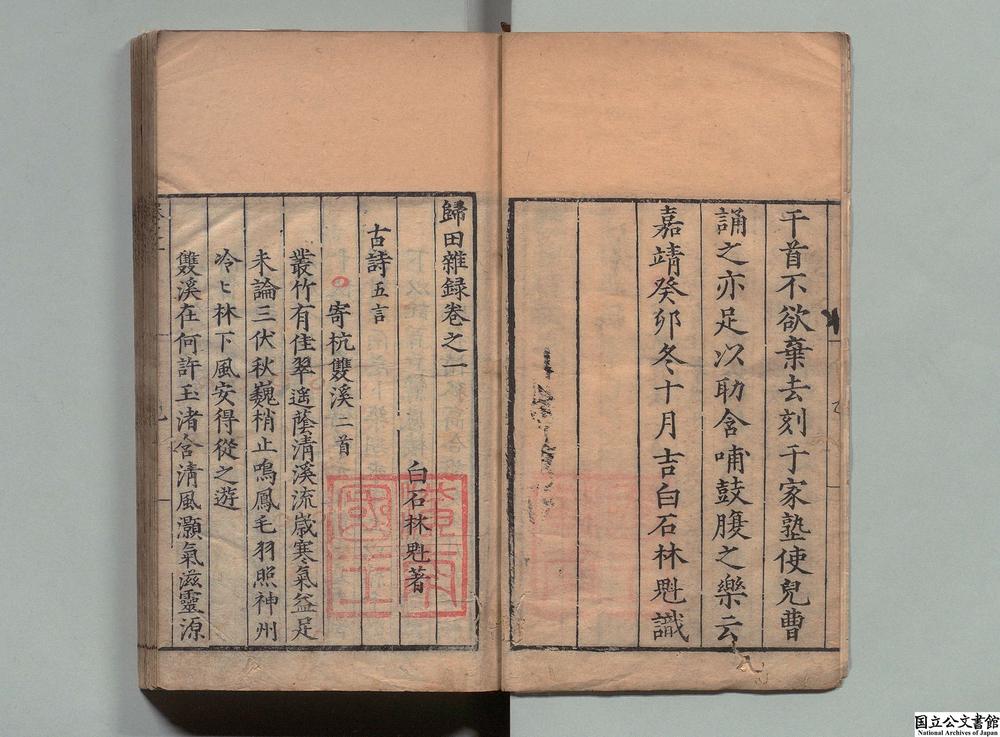 千首不欲棄去刻于家塾使兒曹
誦之亦足以助含哺鼓腹之樂云
嘉靖癸卯冬十月吉白石林魁識
歸田雜録卷之一
白石林魁著
古詩五言
寄杭雙溪二首
叢竹有佳翠遥蔭清溪流歲寒氣益足
未論三伏秋巍梢止鳴鳳毛羽照神州
冷〻林下風安得從之遊
雙溪在何許玉渚含清風灝氣滋靈源
国立公文書館
National Archives of Japan